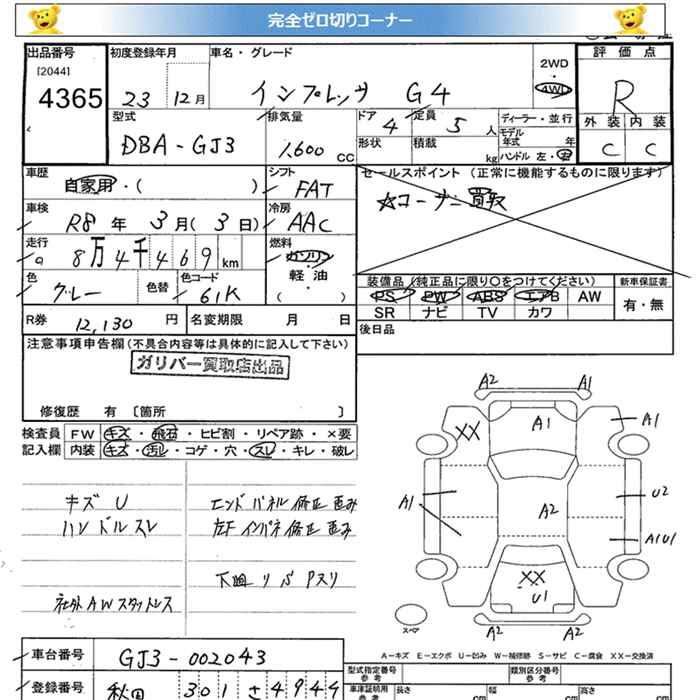 完全ゼロ切りコーナー
出品番号 初度登録年月 車名・グレード 2WD・4WD 評価点
[2044]
4365 23 12月 インプレッサ G4 R
型式 排気量 ドア 定員 ディーラー・並行 外装 内装
DBA-GJ3 1,600 CC 4 5人 モデル年式 年
形状 積載 kg ハンドル 左・右 C C
車歴 自家用・( ) シフト FAT セールスポイント (正常に機能するものに限ります)
☆コーナー買取
車検 R8年 3月(3日) 冷房 AAC
走行 8万4千469km 燃料 ガソリン
軽・油
( ・ )
色 グレー 色替 色コード 61K
装備品 (純正品に限り○をつけてください) 新車保証書
PS PW ABS エアB AW 有・無
SR ナビ TV カワ
R券 12,130円 名変期限 月 日 後日品
注意事項申告欄(不具合内容等は具体的に記入して下さい)
ガリバー買取店出品
修復歴 有〔箇所 〕
検査員 FW キズ・飛石・ヒビ割・リペア跡・×要
記入欄 内装 キズ・汚レ・コゲ・穴・スレ・キレ・破レ
キズU エンドパネル修正歪み
ハンドルスレ 左Fインパネ修正歪み
下廻りサビPスリ
社外AWスタットレス
A2 A1
XX A1 A1
A1 A2 U2
A1U1
XX
U1
A2 A2
スペア
A-キズ E-エクボ U-凹み W-補修跡 S-サビ C-腐食 XX-交換済
車台番号 GJ3-002043
型式指定番号 参考 類別区分番号 参考
登録番号 秋田 301 さ 4944
車庫証明用 参考 長さ 幅 高さ